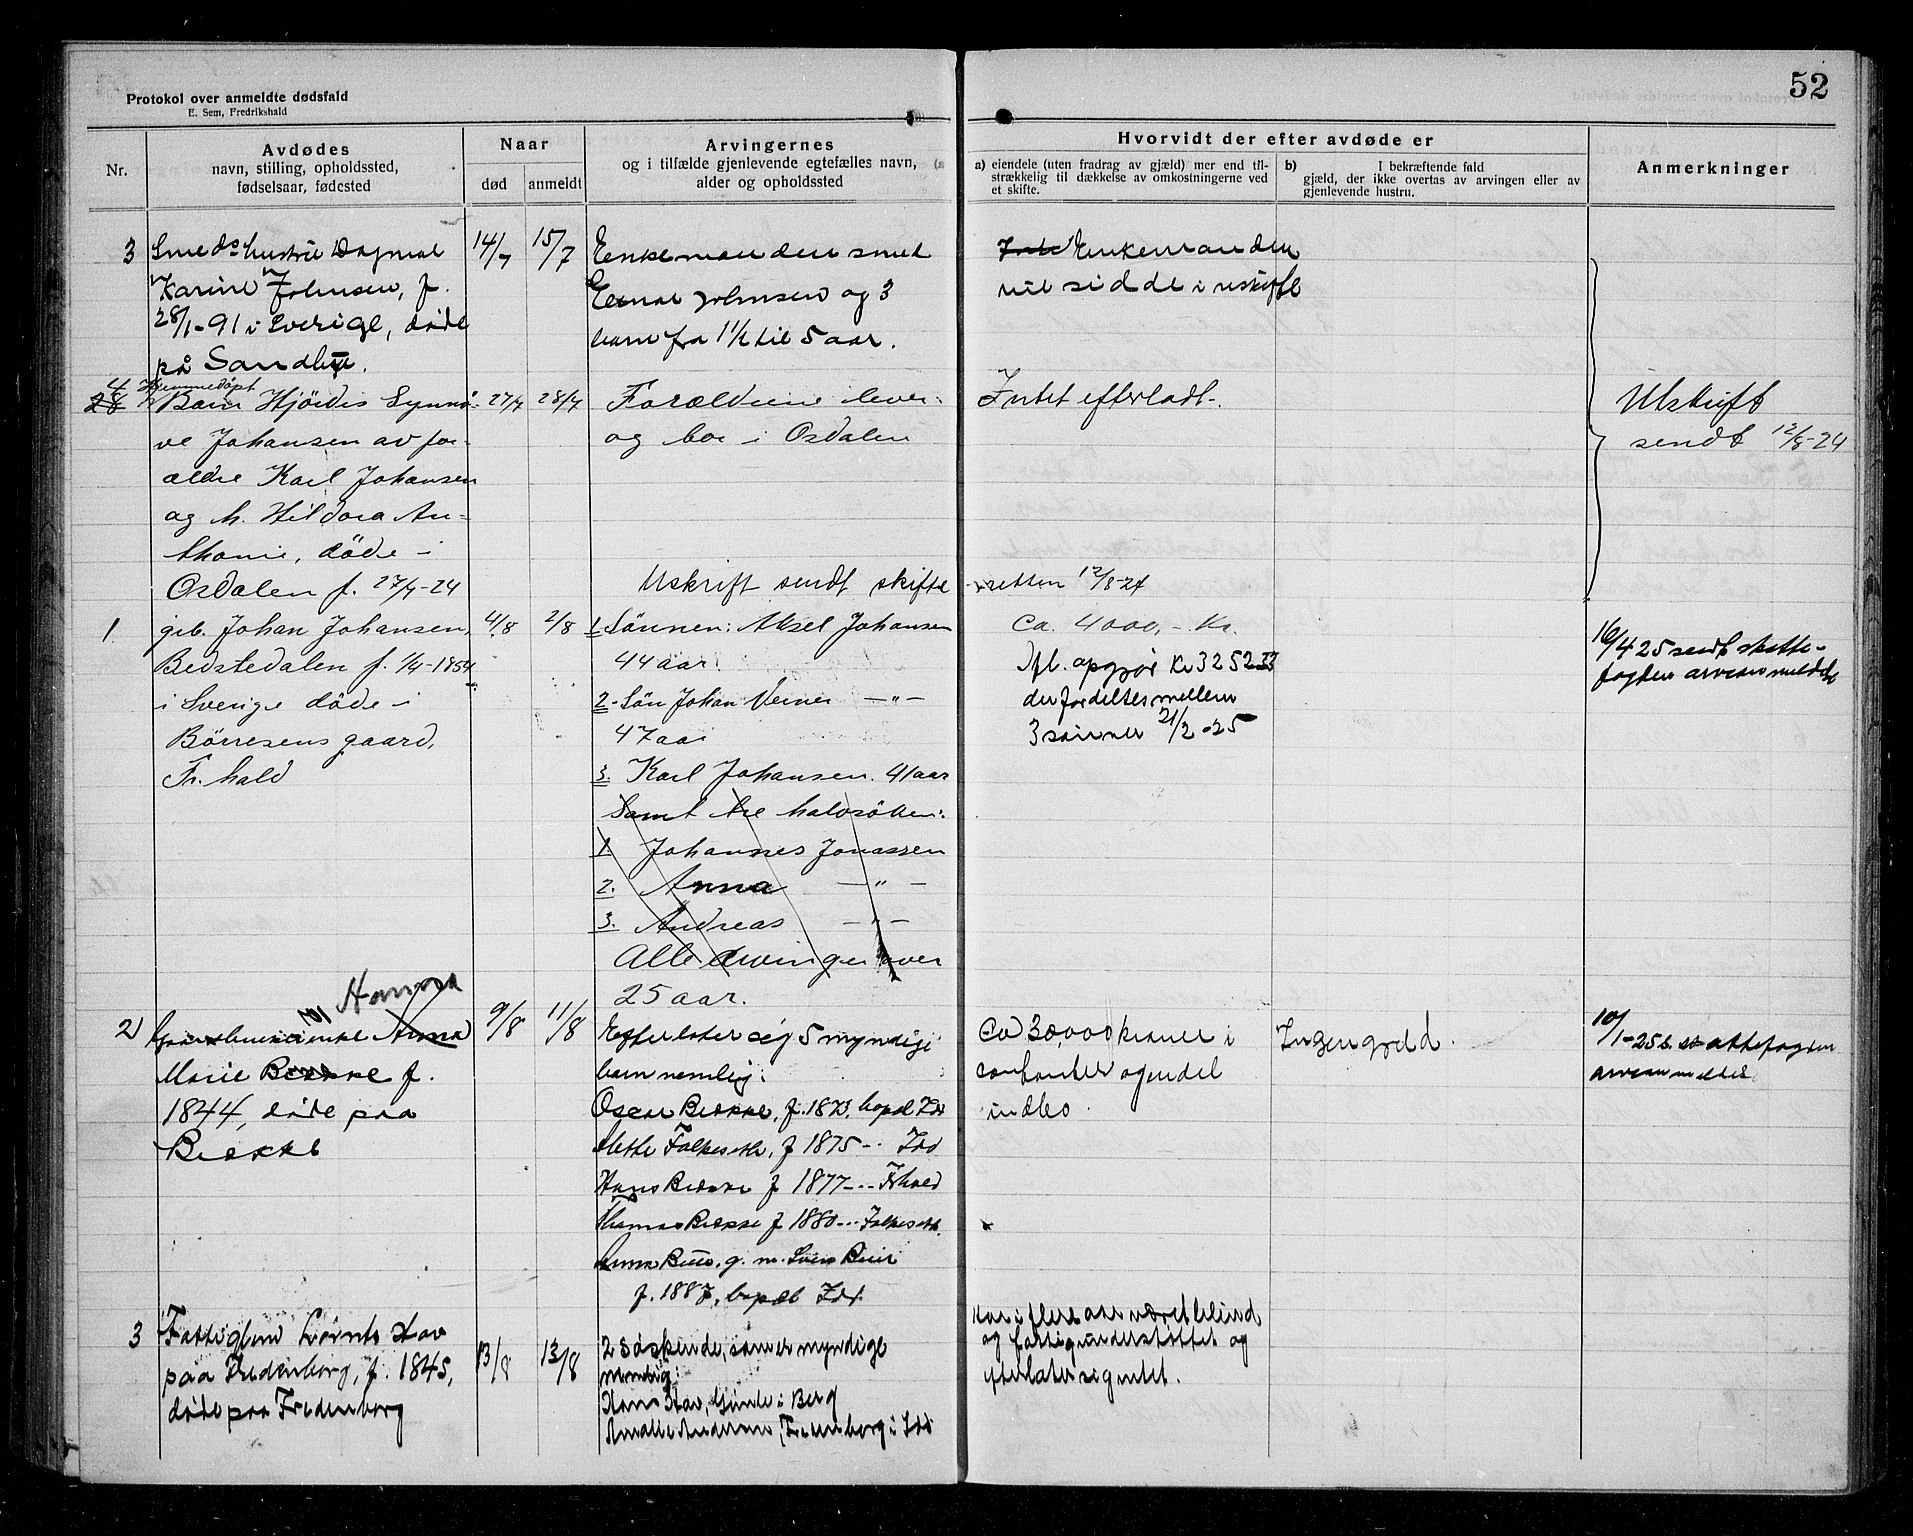 52
Protokol over anmeldte dødsfald
E. Sem, Fredrikshald
Nr.
Avdødes
navn, stilling, opholdssted,
fødselsaar, fødested
Naar
død
anmeldt
Arvingernes
og i tilfælde gjenlevende egtefælles navn,
alder og opholdssted
Hvorvidt der efter avdøde er
a) eiendele (uten fradrag av gjæld) mer end til-
strækkelig til dækkelse av omkostningerne ved
et skifte.
b) I bekræftende fald
gjæld, der ikke overtas av arvingen eller av
gjenlevende hustru.
Anmerkninger
3
Smeds hustru Dagmar
Karine Johnsen, f.
28/1-91 i Sverige, døde
på
14/7
15/7
Enkemanden smed
Johnsen og 3
barn fra 1½ til 5 aar.
Enkemanden
vil sidde i uskifte
4
Hjemmedøpt
Barn Hjördis Synnö-
ve Johansen av for-
ældre Karl Johansen
og h. Hildora An-
thonie, döde i
Osdalen f. 27/7-24
27/7
28/7
Forældrene lever
og bor i Osdalen
Intet efterladt.
Utskrift
sendt 12/8-24
Utskrift sendt skifte
retten 12/8-24
1
Johan Johansen,
Bedstedalen f. 1/4-1854
i Sverige döde i
Börresens gaard,
Fr.hald
4/8
2/8
1. Sönnen: Aksel Johansen
44 aar
2. Sön Johan Verner —"—
47 aar
3. Karl Johansen. 41 aar
Samt tre halvsöken:
1. Johannes Jonassen
2. Anna —"—
3. Andreas —"—
Alle arvinger over
25 aar.
Ca. 4000,- Kr.
Ifl. opgjør Kr 3252.33
der fordeltes mellem
3 sønner 21/2-25
16/4 25 sendt skatte-
fogden arveanmeldelse
2
enke Anna
Hanna
Marie Bekke f.
1844, døde paa
Bekke
9/8
11/8
Efterlater sig 5 myndige
barn nemlig:
Oscar Bekke, f. 1873, bopæl Idd
Mette Falkeseth, f 1875 -- Idd
Hans Bekke f 1877 --- Frhald
Thomas Bekke f 1880 --- Falkeseth
Anna Buer, g. m. Sven Buer
f. 1887, bopæl Idd.
Ca 30,000 kroner i
contanter og endel
indbo
Ingen gjeld.
10/1-25 s. skattefogden
arveanmeldel.
3
Fattiglem
paa Fredenborg, f. 1845,
døde paa Fredenborg
13/8
13/8
2 søskende, som er myndige
nemlig:
Hans i Berg
Amalie Andersen, Fredenborg i Idd
Har i flere aar været blind
og fattigunderstøttet og
efterlater sig intet.